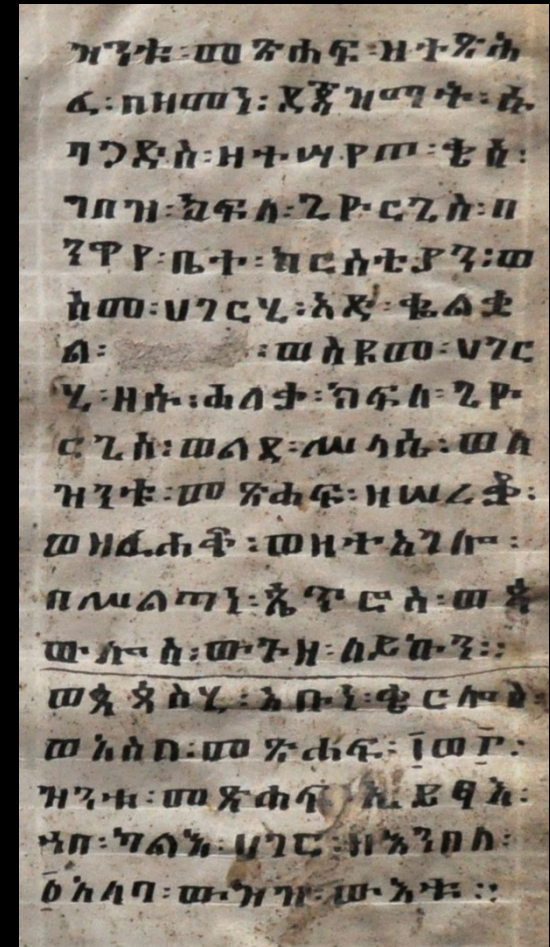 ዝንቱ፡መጽሐፍ፡ዘተጽሕ
ፈ፡በዘመነ፡
ዘተሣየጠ፡
ክፍለ፡ጊዮርጊስ፡በ
ንዋየ፡ቤተ፡ክርስቲያን፡ወ
ስሙ፡ሀገርሂ፡እጅ፡ቈልቋ
ል፡ ፡ወስዩመ፡ሀገር
ሂ፡ዘሱ፡ሐለቃ፡ክፍለ፡ጊዮ
ርጊስ፡ወልደ፡ሥላሴ፡ወለ
ዝንቱ፡መጽሐፍ፡ዘሠረቆ፡
ወዘፈሐቆ፡ወዘተአገሎ፡
በሥልጣነ፡ጴጥሮስ፡ወጳ
ውሎስ፡ውጉዘ፡ለይኩን።
ወጳጳስሂ፡አቡነ፡ቄርሎስ፡
ወእስከ፡መጽሐፍ፡፲ወ፫፡
ዝንቱ፡መጽሐፍ ኢይፃእ፡
ኀበ፡ካልእ፡ሀገር፡ዘእንበለ፡
ዕለባ፡ውጉዝ፡ውእቱ።